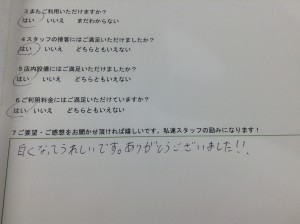 3またご利用いただけますか？
はい　いいえ　まだわからない
4スタッフの接客にはご満足いただけましたか？
はい　いいえ　どちらともいえない
5店内設備にはご満足いただけましたか？
はい　いいえ　どちらともいえない
6ご利用料金にはご満足いただけていますか？
はい　いいえ　どちらともいえない
7ご要望・ご感想をお聞かせ頂ければ嬉しいです。私達スタッフの励みになります！
白くなってうれしいです。ありがとうございました!!